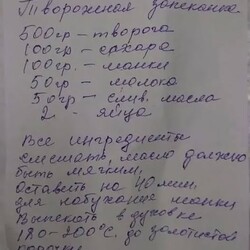 Творожная запеканка
500гр – творога
100гр – сахара
100гр. – манки
50гр – молока
50гр – слив. масла
2 – яйца
Все ингредиенты
смешать, масло должно
быть мягким,
оставить на 40 мин.
для набухание манки
Выпекать в духовке
180-200°С. до золотистой
корочки